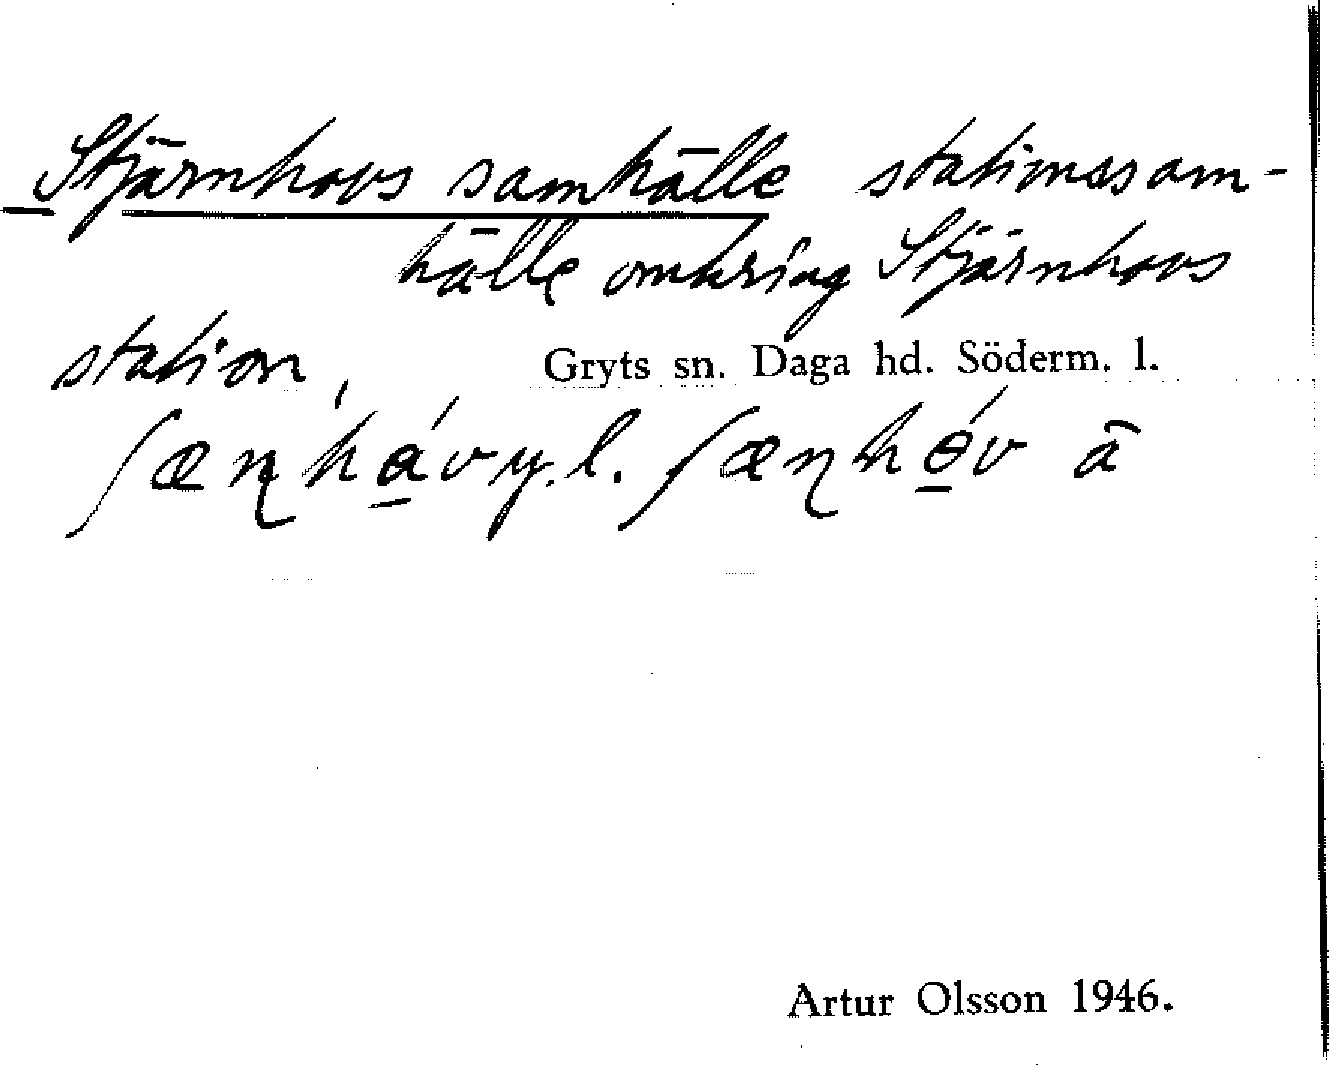 Stjärnhovs samhälle stationssam-
hälle omkring Stjärnhovs
station, Gryts sn. Daga hd. Söderm. l.
ʃæɳhá̱v y.l. ʃæɳhó̱v ā
Artur Olsson 1946.